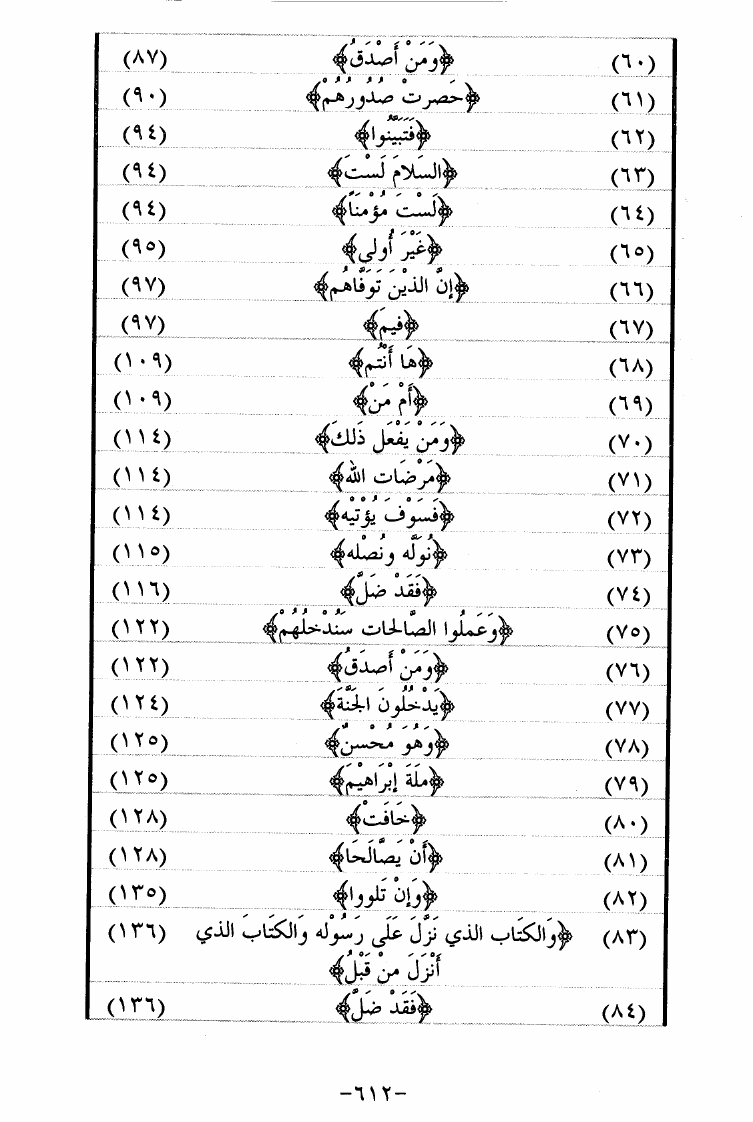 (٦٠) ﴿وَمَنْ أَصْدَقُ﴾ (٨٧)
(٦١) ﴿حَصرتْ صُدُورُهُمْ﴾ (٩٠)
(٦٢) ﴿فَتَبَيَّنُوا﴾ (٩٤)
(٦٣) ﴿السَلامَ لَسْتَ﴾ (٩٤)
(٦٤) ﴿لَسْتَ مُؤْمنَاً﴾ (٩٤)
(٦٥) ﴿غَيْرَ أُولى﴾ (٩٥)
(٦٦) ﴿إنَّ الذيْنَ تَوَفَّاهُم﴾ (٩٧)
(٦٧) ﴿فيمَ﴾ (٩٧)
(٦٨) ﴿هَا أَنْتُم﴾ (١٠٩)
(٦٩) ﴿أَمْ مَنْ﴾ (١٠٩)
(٧٠) ﴿وَمَنْ يَفْعَل ذَلكَ﴾ (١١٤)
(٧١) ﴿مَرْضَات الله﴾ (١١٤)
(٧٢) ﴿فَسَوْفَ يُؤْتيْه﴾ (١١٤)
(٧٣) ﴿نُوَلَّه ونُصْله﴾ (١١٥)
(٧٤) ﴿فَقَدْ ضَلَّ﴾ (١١٦)
(٧٥) ﴿وَعَملُوا الصَّالحَات سَنُدْخلُهُمْ﴾ (١٢٢)
(٧٦) ﴿وَمَنْ أَصدَقُ﴾ (١٢٢)
(٧٧) ﴿يَدْخُلُونَ الجَنَّةَ﴾ (١٢٤)
(٧٨) ﴿وَهُوَ مُحْسنٌ﴾ (١٢٥)
(٧٩) ﴿ملَةَ إبْرَاهيْمَ﴾ (١٢٥)
(٨٠) ﴿خَافَتْ﴾ (١٢٨)
(٨١) ﴿أَنْ يَصَّالَحَا﴾ (١٢٨)
(٨٢) ﴿وَإنْ تَلووا﴾ (١٣٥)
(٨٣) ﴿وَالكتَاب الذي نَزَّلَ عَلَى رَسُوْله وَالكتَابَ الذي (١٣٦)
أَنْزَلَ منْ قَبْلُ﴾
(٨٤) ﴿فَقَدْ ضَلَّ﴾ (١٣٦)
-٦١٢-